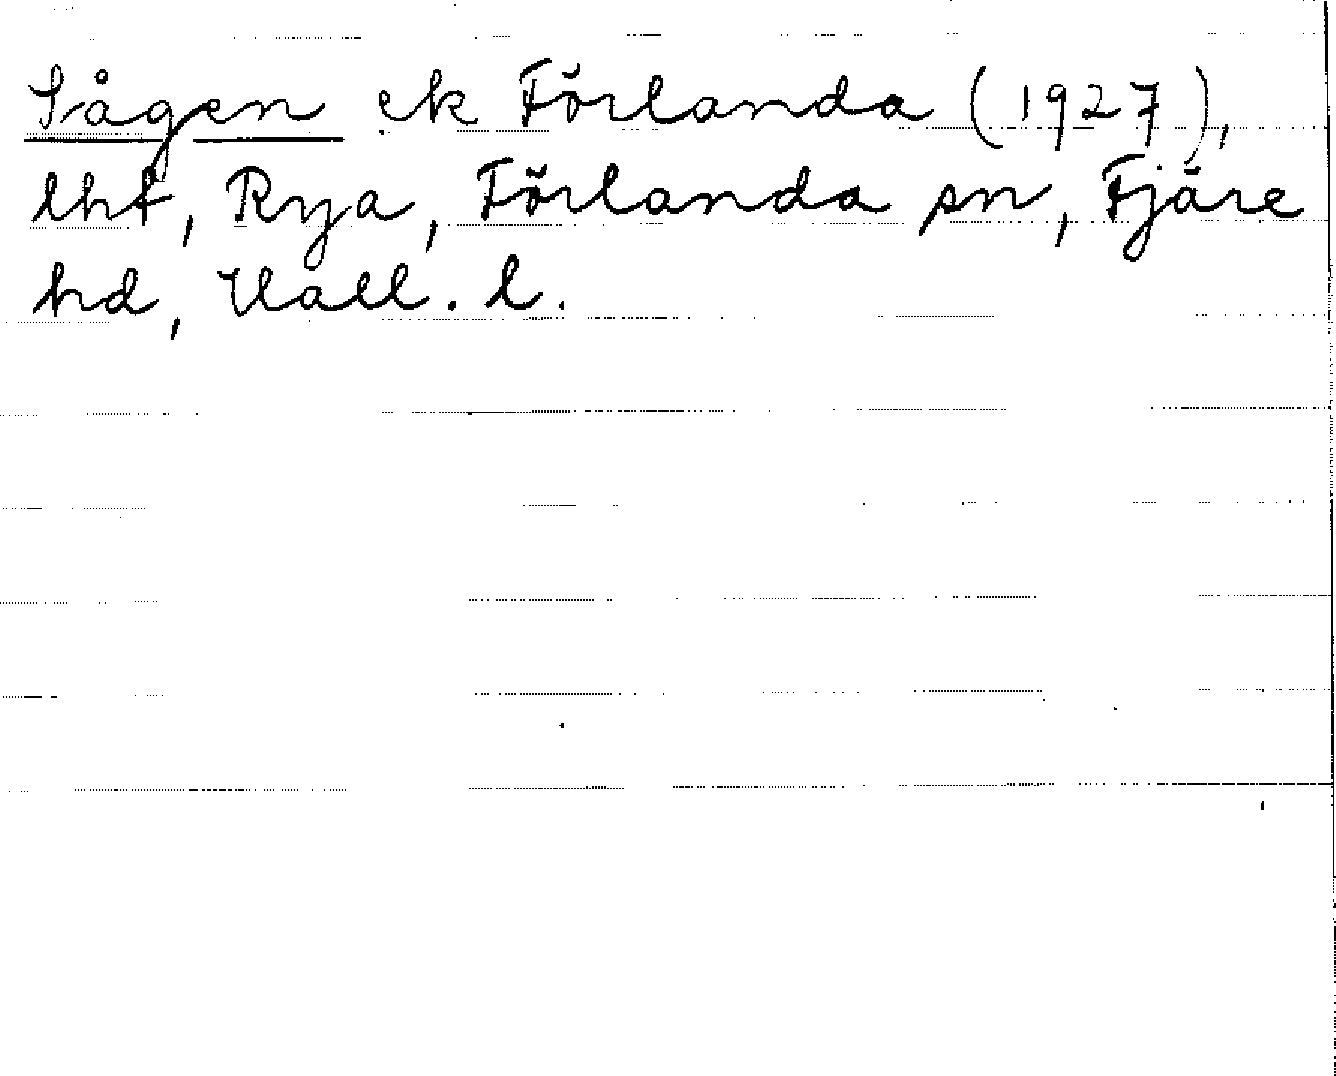 Sågen ek Förlanda (1927),
lht, Rya, Förlanda sn, Fjäre
hd, Hall. l.